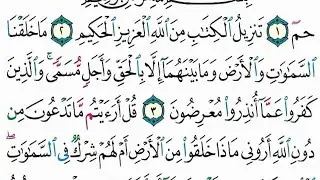 حمٓ ١ تَنزِيلُ ٱلْكِتَـٰبِ مِنَ ٱللَّهِ ٱلْعَزِيزِ ٱلْحَكِيمِ ٢ مَا خَلَقْنَا
ٱلسَّمَـٰوَٰتِ وَٱلْأَرْضَ وَمَا بَيْنَهُمَآ إِلَّا بِٱلْحَقِّ وَأَجَلٍ مُّسَمًّى ۚ وَٱلَّذِينَ
كَفَرُوا۟ عَمَّآ أُنذِرُوا۟ مُعْرِضُونَ ٣ قُلْ أَرَءَيْتُم مَّا تَدْعُونَ مِن
دُونِ ٱللَّهِ أَرُونِى مَاذَا خَلَقُوا۟ مِنَ ٱلْأَرْضِ أَمْ لَهُمْ شِرْكٌ فِى ٱلسَّمَـٰوَٰتِ ۖ